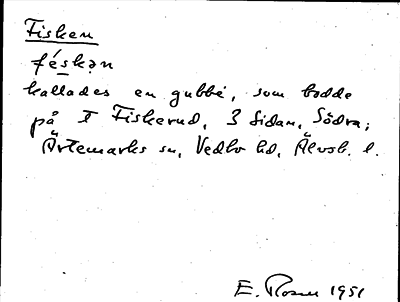 Fisken
féskən
kallades en gubbe, som bodde
på T Fiskerud, 3 Sidan, Södra;
Ärtemarks sn, Vedbo hd, Älvsb. l.
E. Rosen 1951